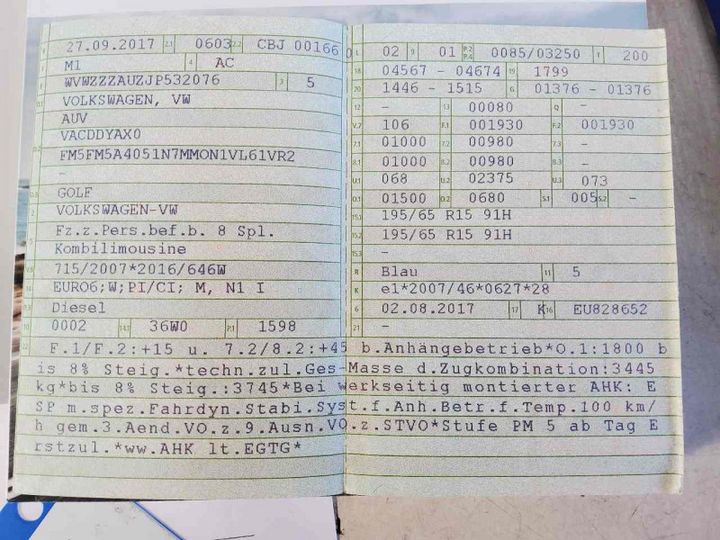 B 27.09.2017 2.1 0603 2.2 CBJ 00166 0
J M1 4 AC
E WVWZZZAUZJP532076 3 5
VOLKSWAGEN, VW
AUV
VACDDYAX0
FM5FM5A4051N7MMON1VL61VR2
-
GOLF
VOLKSWAGEN-VW
Fz.z.Pers.bef.b. 8 Spl.
Kombilimousine
715/2007*2016/646W
EURO6;W;PI/CI; M, N1 I
Diesel
0002 14.1 36W0 P.1 1598
L 02 9 01 P.2 P.4 0085/03250 T 200
18 04567 - 04674 19 1799
20 1446 - 1515 G 01376 - 01376
12 - 13 00080 Q -
V.7 106 F.1 001930 F.2 001930
7.1 01000 7.2 00980 7.3 -
8.1 01000 8.2 00980 8.3 -
U.1 068 U.2 02375 U.3 073
O.1 01500 O.2 0680 S.1 005 S.2 -
15.1 195/65 R15 91H
15.2 195/65 R15 91H
15.3 -
R Blau 11 5
K e1*2007/46*0627*28
6 02.08.2017 17 K 16 EU828652
21 -
F.1/F.2:+15 u. 7.2/8.2:+45 b.Anhängebetrieb*O.1:1800 b
is 8% Steig.*techn.zul.Ges-Masse d.Zugkombination:3445
kg*bis 8% Steig.:3745*Bei werkseitig montierter AHK: E
SP m.spez.Fahrdyn.Stabi.Syst.f.Anh.Betr.f.Temp.100 km/
h gem.3.Aend.VO.z.9.Ausn.VO.z.STVO*Stufe PM 5 ab Tag E
rstzul.*ww.AHK lt.EGTG*